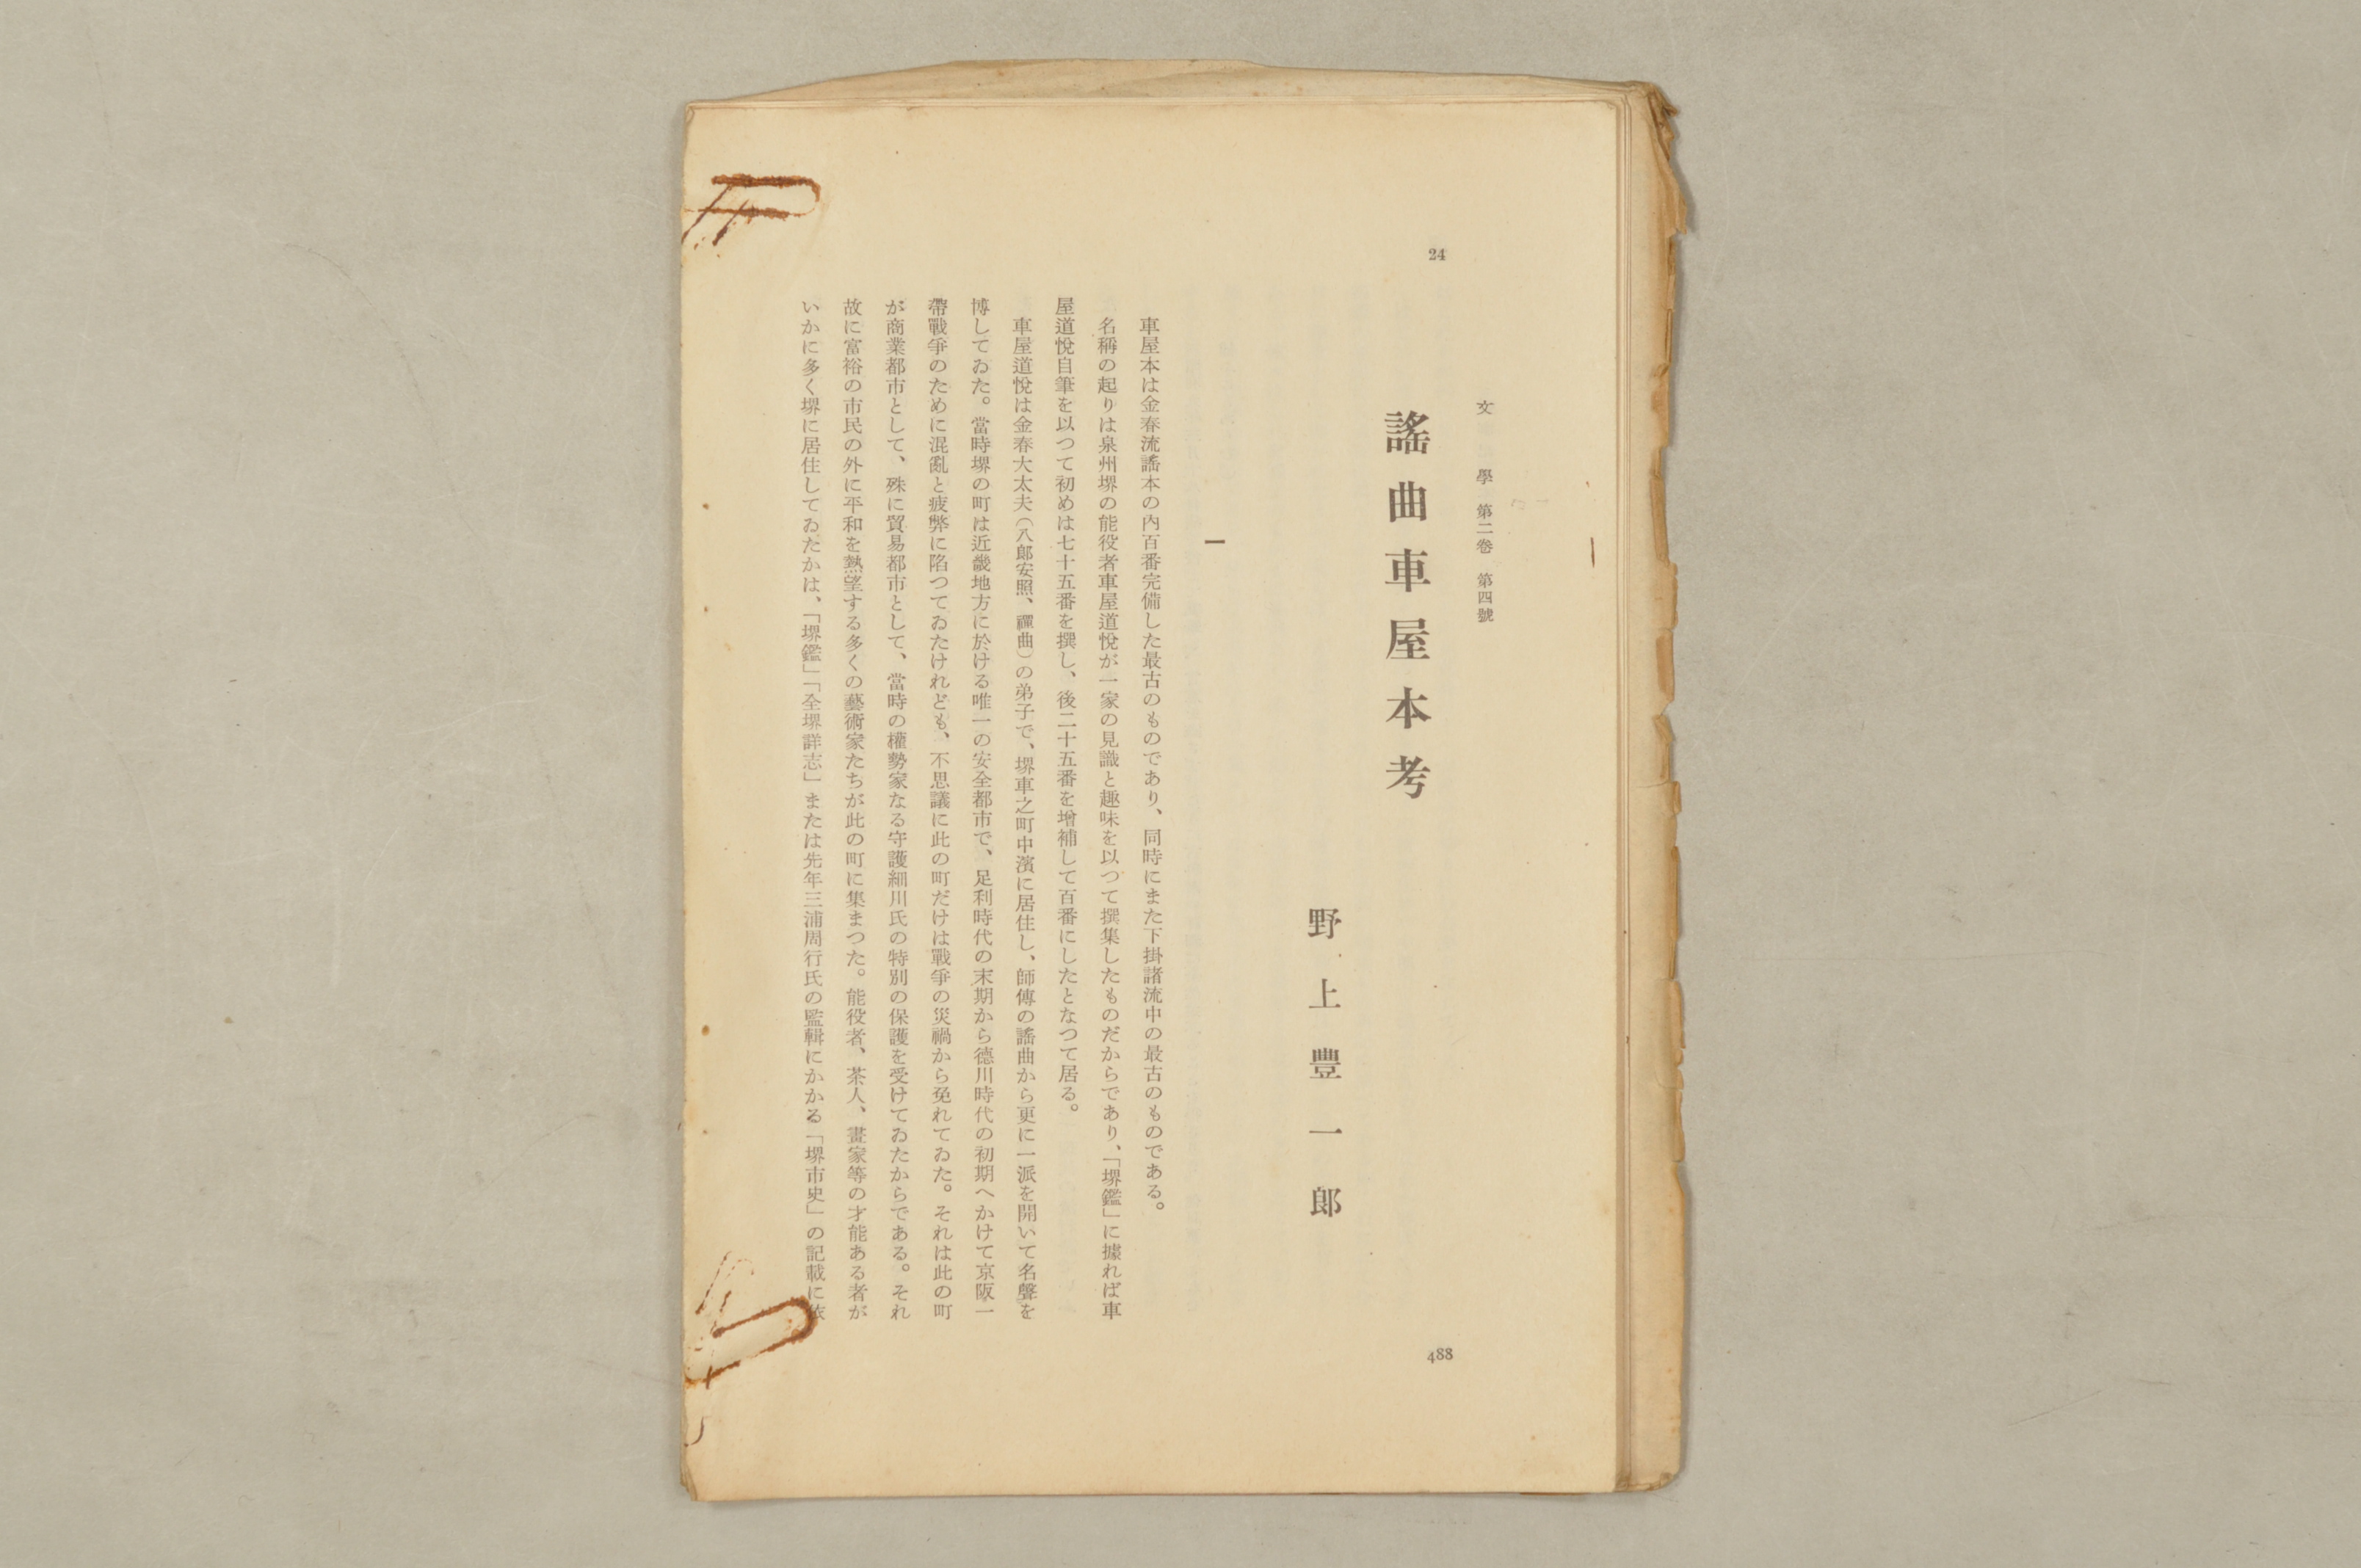 24
文學 第二卷 第四號
謠曲車屋本考
野上豐一郎
一
車屋本は金春流謠本の內百番完備した最古のものであり、同時にまた下掛諸流中の最古のものである。
名稱の起りは泉州堺の能役者車屋道悅が一家の見識と趣味を以つて撰集したものだからであり、「堺鑑」に據れば車
屋道悅自筆を以つて初めは七十五番を撰し、後二十五番を增補して百番にしたとなつて居る。
車屋道悅は金春大太夫（八郞安照、禪曲）の弟子で、堺車之町中濱に居住し、師傳の謠曲から更に一派を開いて名聲を
博してゐた。當時堺の町は近畿地方に於ける唯一の安全都市で、足利時代の末期から德川時代の初期へかけて京阪一
帶戰爭のために混亂と疲弊に陷つてゐたけれども、不思議に此の町だけは戰爭の災禍から免れてゐた。それは此の町
が商業都市として、殊に貿易都市として、當時の權勢家なる守護細川氏の特別の保護を受けてゐたからである。それ
故に富裕の市民の外に平和を熱望する多くの藝術家たちが此の町に集まつた。能役者、茶人、畫家等の才能ある者が
いかに多く堺に居住してゐたかは、「堺鑑」「全堺詳志」または先年三浦周行氏の監輯にかかる「堺市史」の記載に依
488